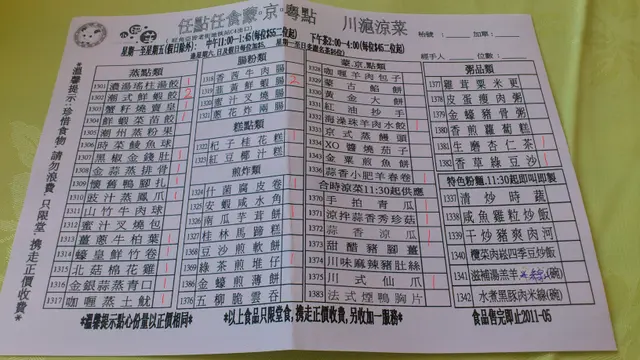 任點任食蒙·京·粵點 川滬涼菜
枱號: 加單:
星期一至星期五(假日除外) 中午11:00-1:45(每位$55二位起) 下午茶2:00-4:00(每位$45二位起)
經手人 位數:
*溫馨提示:珍惜食物,請勿浪費,只限堂食,携走正價收費*
蒸點類
1301 濃湯瑤柱湯餃 1
1302 潮式鮮蝦餃 2
1303 蟹籽燒賣皇
1304 鮮蝦菜苗餃 1
1305 潮州蒸粉果
1306 時菜鯪魚球
1307 黑椒金錢肚 1
1308 金蒜蒸排骨 1
1309 懷舊鴨腳扎 1
1310 豉汁蒸鳳爪 1
1311 山竹牛肉球
1312 蜜汁叉燒包
1313 薑蔥牛柏葉 1
1314 蠔皇鮮竹卷 1
1315 北菇棉花雞 1
1316 金銀蒜蒸青口 1
1317 咖喱蒸土魷 1
腸粉類
1318 香茜牛肉腸
1319 韭黃鮮蝦腸 2
1320 蜜汁叉燒腸
1321 蔥花炸兩腸
糕點類
1322 杞子桂花糕 1
1323 紅豆椰汁糕 1
煎炸類
1324 什菌腐皮卷 1
1325 安蝦咸水角
1326 南瓜芋茸餅 1
1327 桂林馬蹄糕
1368 豆沙煎軟餅
1369 綠茶煎堆仔 1
1376 金蠔煎薄餅
1376 五柳脆雲吞
蒙.京.點類
1328 咖喱羊肉包子
1329 蒙古餡餅
1330 黃金大餅
1331 紅油抄手
1332 海澡珠羊肉水餃 1
1333 京式蒸饅頭
1334 XO醬燒茄子
1343 金粟煎魚餅
1336 蒜香小肥羊春卷 1
合時涼菜11:30起供應
1370 手拍青瓜 1
1371 涼拌蒜香秀珍菇 1
1372 蒜香涼瓜
1373 甜醋豬腳薑
1374 川味麻辣豬肚絲
1375 川式仙爪 1
1383 法式煙鴨胸片
粥品類
1377 雞茸粟米更
1378 皮蛋瘦肉粥
1379 金蠔豬骨粥
1380 香煎蘿蔔糕
1381 生磨杏仁茶 1
1382 香草綠豆沙 1
特色粉麵,11:30起即叫即製
1337 清炒時蔬
1338 咸魚雞粒炒飯
1339 干炒豬爽肉河
1340 欖菜肉崧四季豆炒飯
1341 滋補湯羔羊 (碗)
1342 水煮黑豚肉米線(碗)
*溫馨提示點心份量以正價相同* *以上食品只限堂食,携走正價收費,另收加一服務* 食品售完即止2011-05